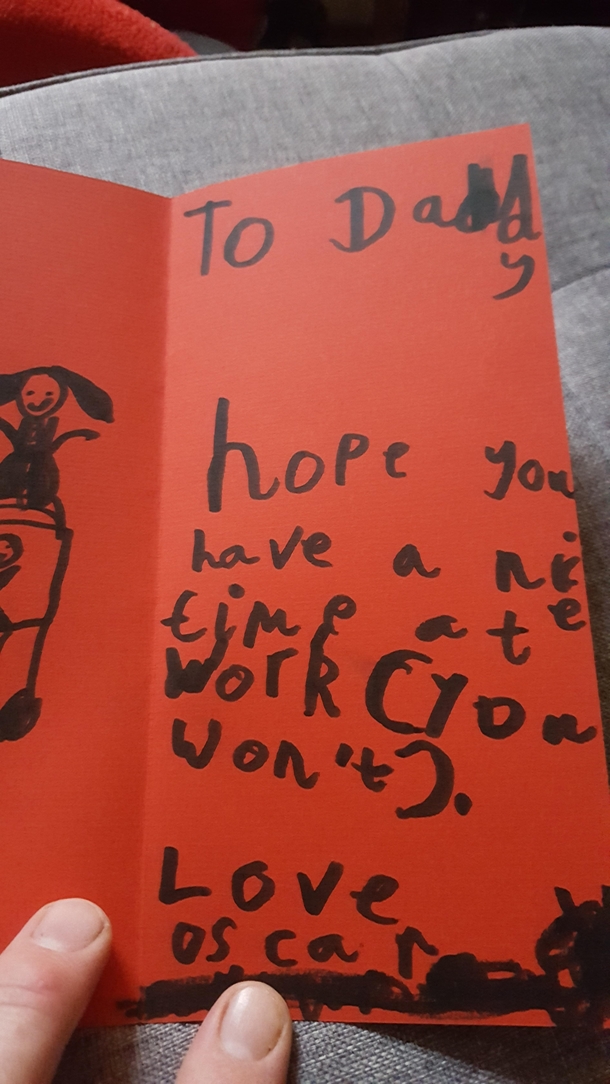 To Daddy
hope you
have a nice
time at
work (you
won't).
Love
oscar